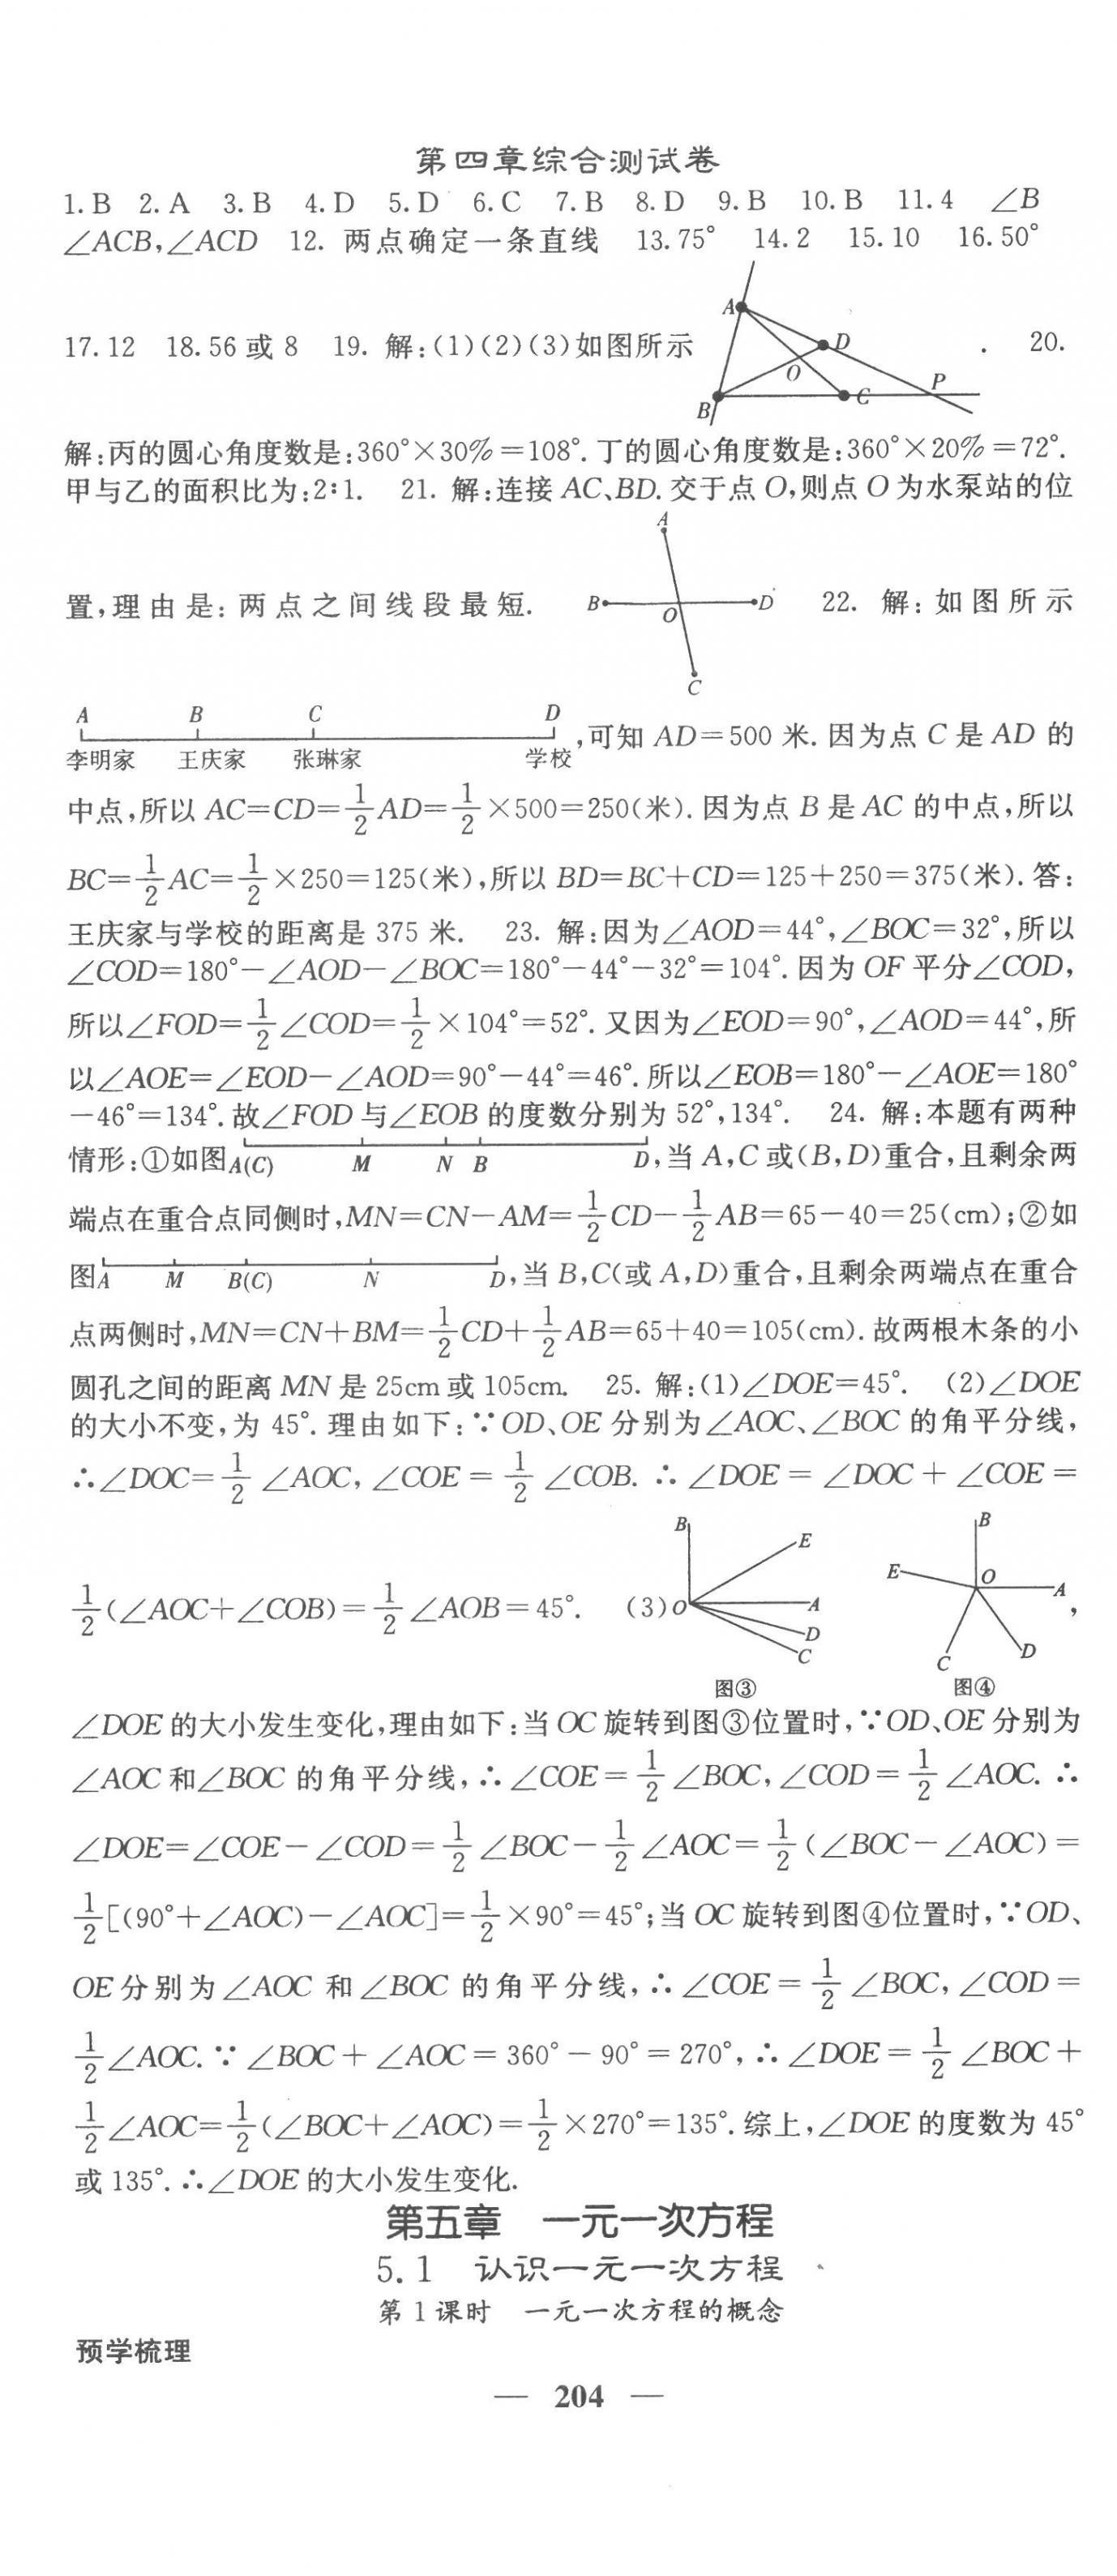 第四章综合测试卷
1. B 2. A 3. B 4. D 5. D 6. C 7. B 8. D 9. B 10. B 11. 4 ∠B
∠ACB,∠ACD 12. 两点确定一条直线 13. 75° 14. 2 15. 10 16. 50°
A
D
17. 12 18. 56 或 8 19. 解:(1)(2)(3)如图所示 . 20.
O
P
B
C
解:丙的圆心角度数是:360°×30%=108°. 丁的圆心角度数是:360°×20%=72°.
甲与乙的面积比为:2∶1. 21. 解:连接 AC、BD. 交于点 O,则点 O 为水泵站的位
A
置,理由是:两点之间线段最短. B D 22. 解:如图所示
O
C
A B C D
李明家 王庆家 张琳家 学校 ,可知 AD=500 米. 因为点 C 是 AD 的
中点,所以 AC=CD=1/2 AD=1/2×500=250(米). 因为点 B 是 AC 的中点,所以
BC=1/2 AC=1/2×250=125(米),所以 BD=BC+CD=125+250=375(米). 答:
王庆家与学校的距离是 375 米. 23. 解:因为∠AOD=44°,∠BOC=32°,所以
∠COD=180°-∠AOD-∠BOC=180°-44°-32°=104°. 因为 OF 平分∠COD,
所以∠FOD=1/2∠COD=1/2×104°=52°. 又因为∠EOD=90°,∠AOD=44°,所
以∠AOE=∠EOD-∠AOD=90°-44°=46°. 所以∠EOB=180°-∠AOE=180°
-46°=134°. 故∠FOD 与∠EOB 的度数分别为 52°,134°. 24. 解:本题有两种
情形:①如图 A(C) M N B D,当 A,C 或(B,D)重合,且剩余两
端点在重合点同侧时,MN=CN-AM=1/2 CD-1/2 AB=65-40=25(cm);②如
图 A M B(C) N D,当 B,C(或 A,D)重合,且剩余两端点在重合
点两侧时,MN=CN+BM=1/2 CD+1/2 AB=65+40=105(cm). 故两根木条的小
圆孔之间的距离 MN 是 25cm 或 105cm. 25. 解:(1)∠DOE=45°. (2)∠DOE
的大小不变,为 45°. 理由如下:∵OD、OE 分别为∠AOC、∠BOC 的角平分线,
∴∠DOC=1/2∠AOC,∠COE=1/2∠COB. ∴∠DOE=∠DOC+∠COE=
1/2(∠AOC+∠COB)=1/2∠AOB=45°. (3) B E O A D C 图③ B E O A C D 图④ ,
∠DOE 的大小发生变化,理由如下:当 OC 旋转到图③位置时,∵OD、OE 分别为
∠AOC 和∠BOC 的角平分线,∴∠COE=1/2∠BOC,∠COD=1/2∠AOC. ∴
∠DOE=∠COE-∠COD=1/2∠BOC-1/2∠AOC=1/2(∠BOC-∠AOC)=
1/2[(90°+∠AOC)-∠AOC]=1/2×90°=45°;当 OC 旋转到图④位置时,∵OD、
OE 分别为∠AOC 和∠BOC 的角平分线,∴∠COE=1/2∠BOC,∠COD=
1/2∠AOC. ∵∠BOC+∠AOC=360°-90°=270°,∴∠DOE=1/2∠BOC+
1/2∠AOC=1/2(∠BOC+∠AOC)=1/2×270°=135°. 综上,∠DOE 的度数为 45°
或 135°. ∴∠DOE 的大小发生变化.
第五章 一元一次方程
5.1 认识一元一次方程
第 1 课时 一元一次方程的概念
预学梳理
— 204 —